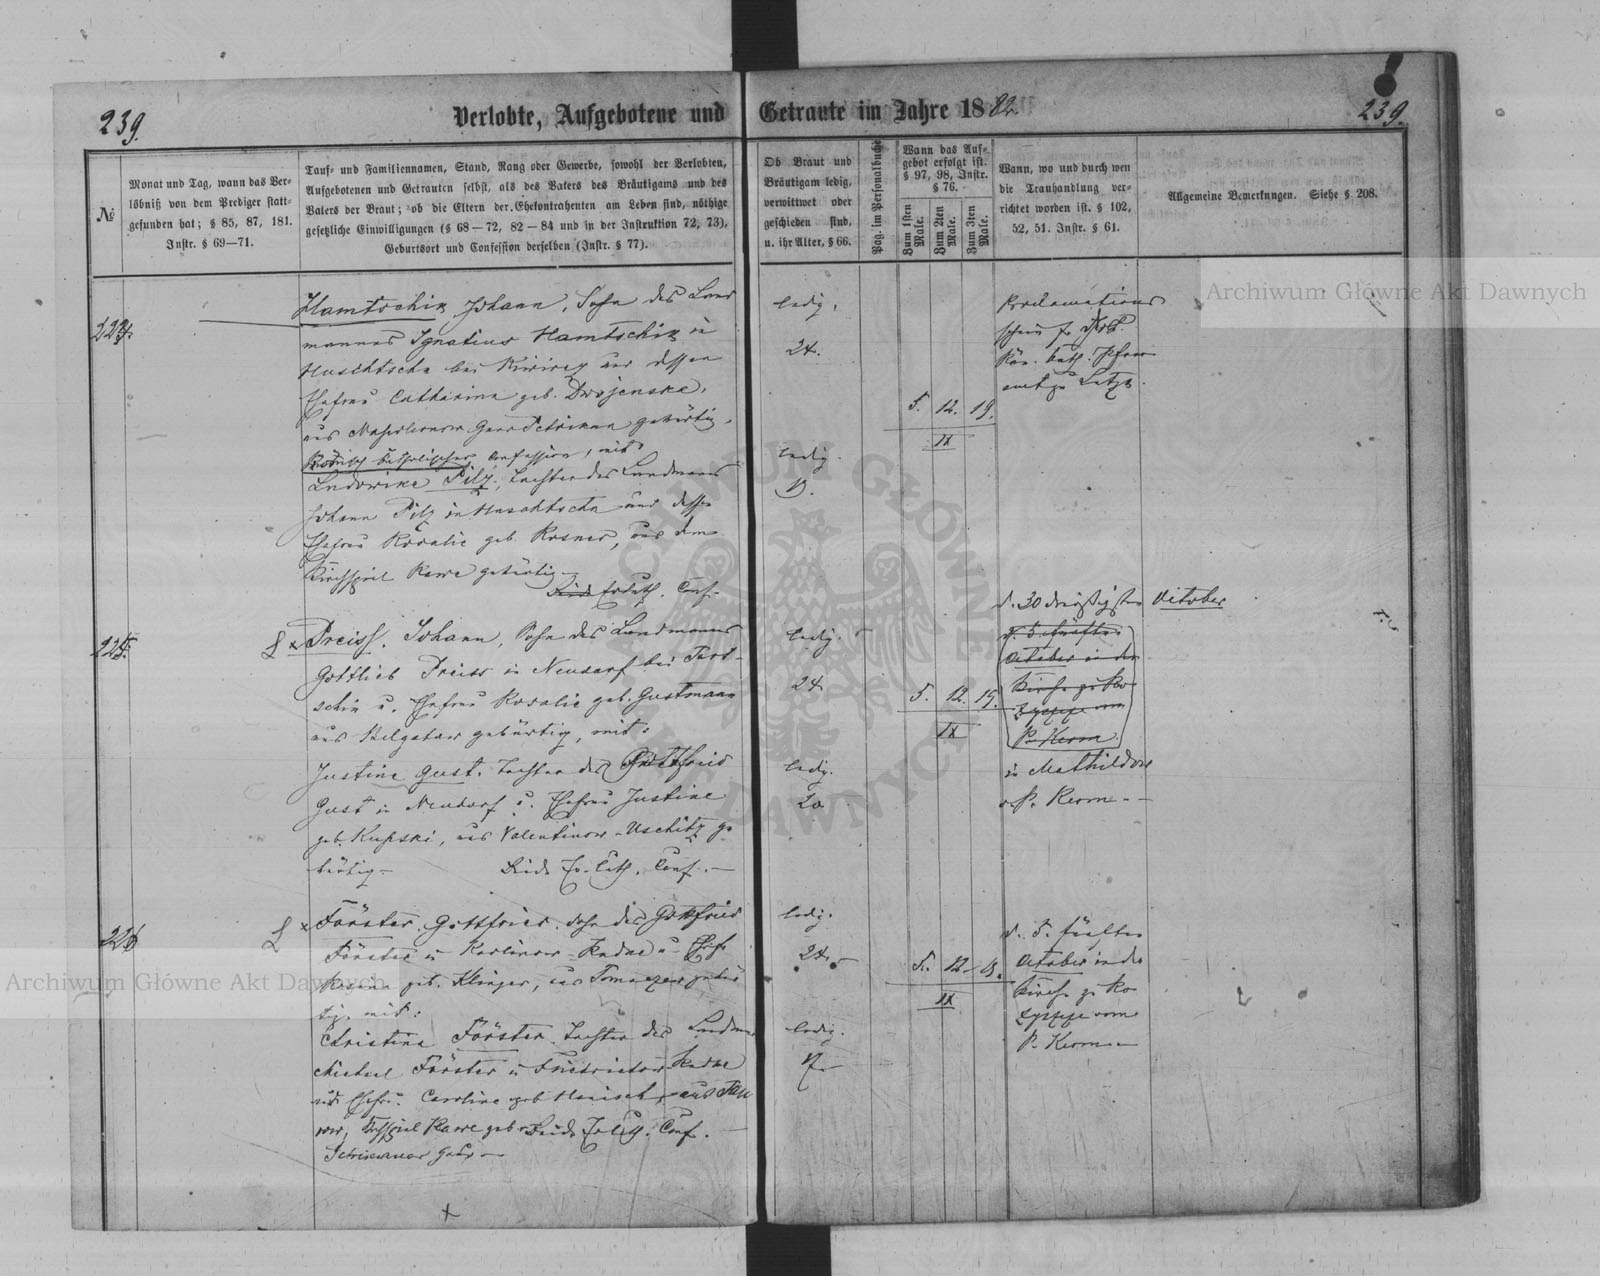 239.
Verlobte, Aufgebotene und Getraute im Jahre 1882.
239.
№
Monat und Tag, wann das Ver-
löbniß von dem Prediger statt-
gefunden hat; § 85, 87, 181.
Instr. § 69—71.
Tauf- und Familiennamen, Stand, Rang oder Gewerbe, sowohl der Verlobten,
Aufgebotenen und Getrauten selbst, als des Vaters des Bräutigams und des
Vaters der Braut; ob die Eltern der Ehekontrahenten am Leben sind, nöthige
gesetzliche Einwilligungen (§ 68—72, 82—84 und in der Instruktion 72, 73),
Geburtsort und Confession derselben (Instr. § 77).
Ob Braut und
Bräutigam ledig,
verwittwet oder
geschieden sind,
u. ihr Alter, § 66.
Pag. im Personalbuche
Wann das Auf-
gebot erfolgt ist.
§ 97, 98, Instr.
§ 76.
Zum 1sten Male.
Zum 2ten Male.
Zum 3ten Male.
Wann, wo und durch wen
die Trauhandlung ver-
richtet worden ist. § 102,
52, 51. Instr. § 61.
Allgemeine Bemerknngen. Siehe § 208.
224.
Hamtschik, Johann, Sohn des Land
mannes Ignatius Hamtschik in
Huschtscha bei und dessen
Ehefrau Catharina geb. Dwojenske,
aus Gouv Petrikau gebürtig,
Römisch katholischer Confession, mit:
Ludowike Pilz, Tochter des Landmanns
Johann Pilz in Huschtscha und dessen
Ehefrau Rosalie geb. Rosner, aus dem
Kirchspiel Rawe gebürtig —
Ev Luth. Conf. —
ledig.
24.
ledig.
5. 12. 19.
IX
Proclamations
schein f. d.
Röm. kath. Pfarr
amt zu Luzk.
225.
Preiss, Johann, Sohn des Landmanns
Gottlieb Preiss in Neudorf bei Tort-
schin u. Ehefrau Rosalie geb. Gustmann
aus gebürtig, mit:
Justine Gust. Tochter des Gottfried
Gust in Neudorf u. Ehefrau Justine
geb. Kupski, aus Valentinow - Uschitz ge
bürtig — Beide Ev. Luth. Conf. —
ledig.
24
ledig.
20
5. 12. 19.
IX
d. 30 dreißigsten October
d. 5. fünften
October in der
Kirche zu Ro
zyszcze vom
P. Kerm.
in Mathildow
v. P. Kerm —
226
Förster, Gottfried, Sohn des Gottfried
Förster in Karlinow - Kadke u. Ehef.
Rosine geb. Klinger, aus gebür
tig. mit:
Christine Förster, Tochter des Landm
Michael Förster in Friedrichow Kadke
und Ehefr. Caroline geb Hanisch, aus
Kirchspiel Rawe geb. Beide Ev Luth. Conf. —
ledig.
24. —
ledig.
5. 12. 19.
IX
d. 5. fünften
October in der
Kirche zu Ro
zyszcze vom
P. Kerm —
Archiwum Główne Akt Dawnych
Archiwum Główne Akt Dawnych
ARCHIWUM GŁÓWNE AKT DAWNYCH